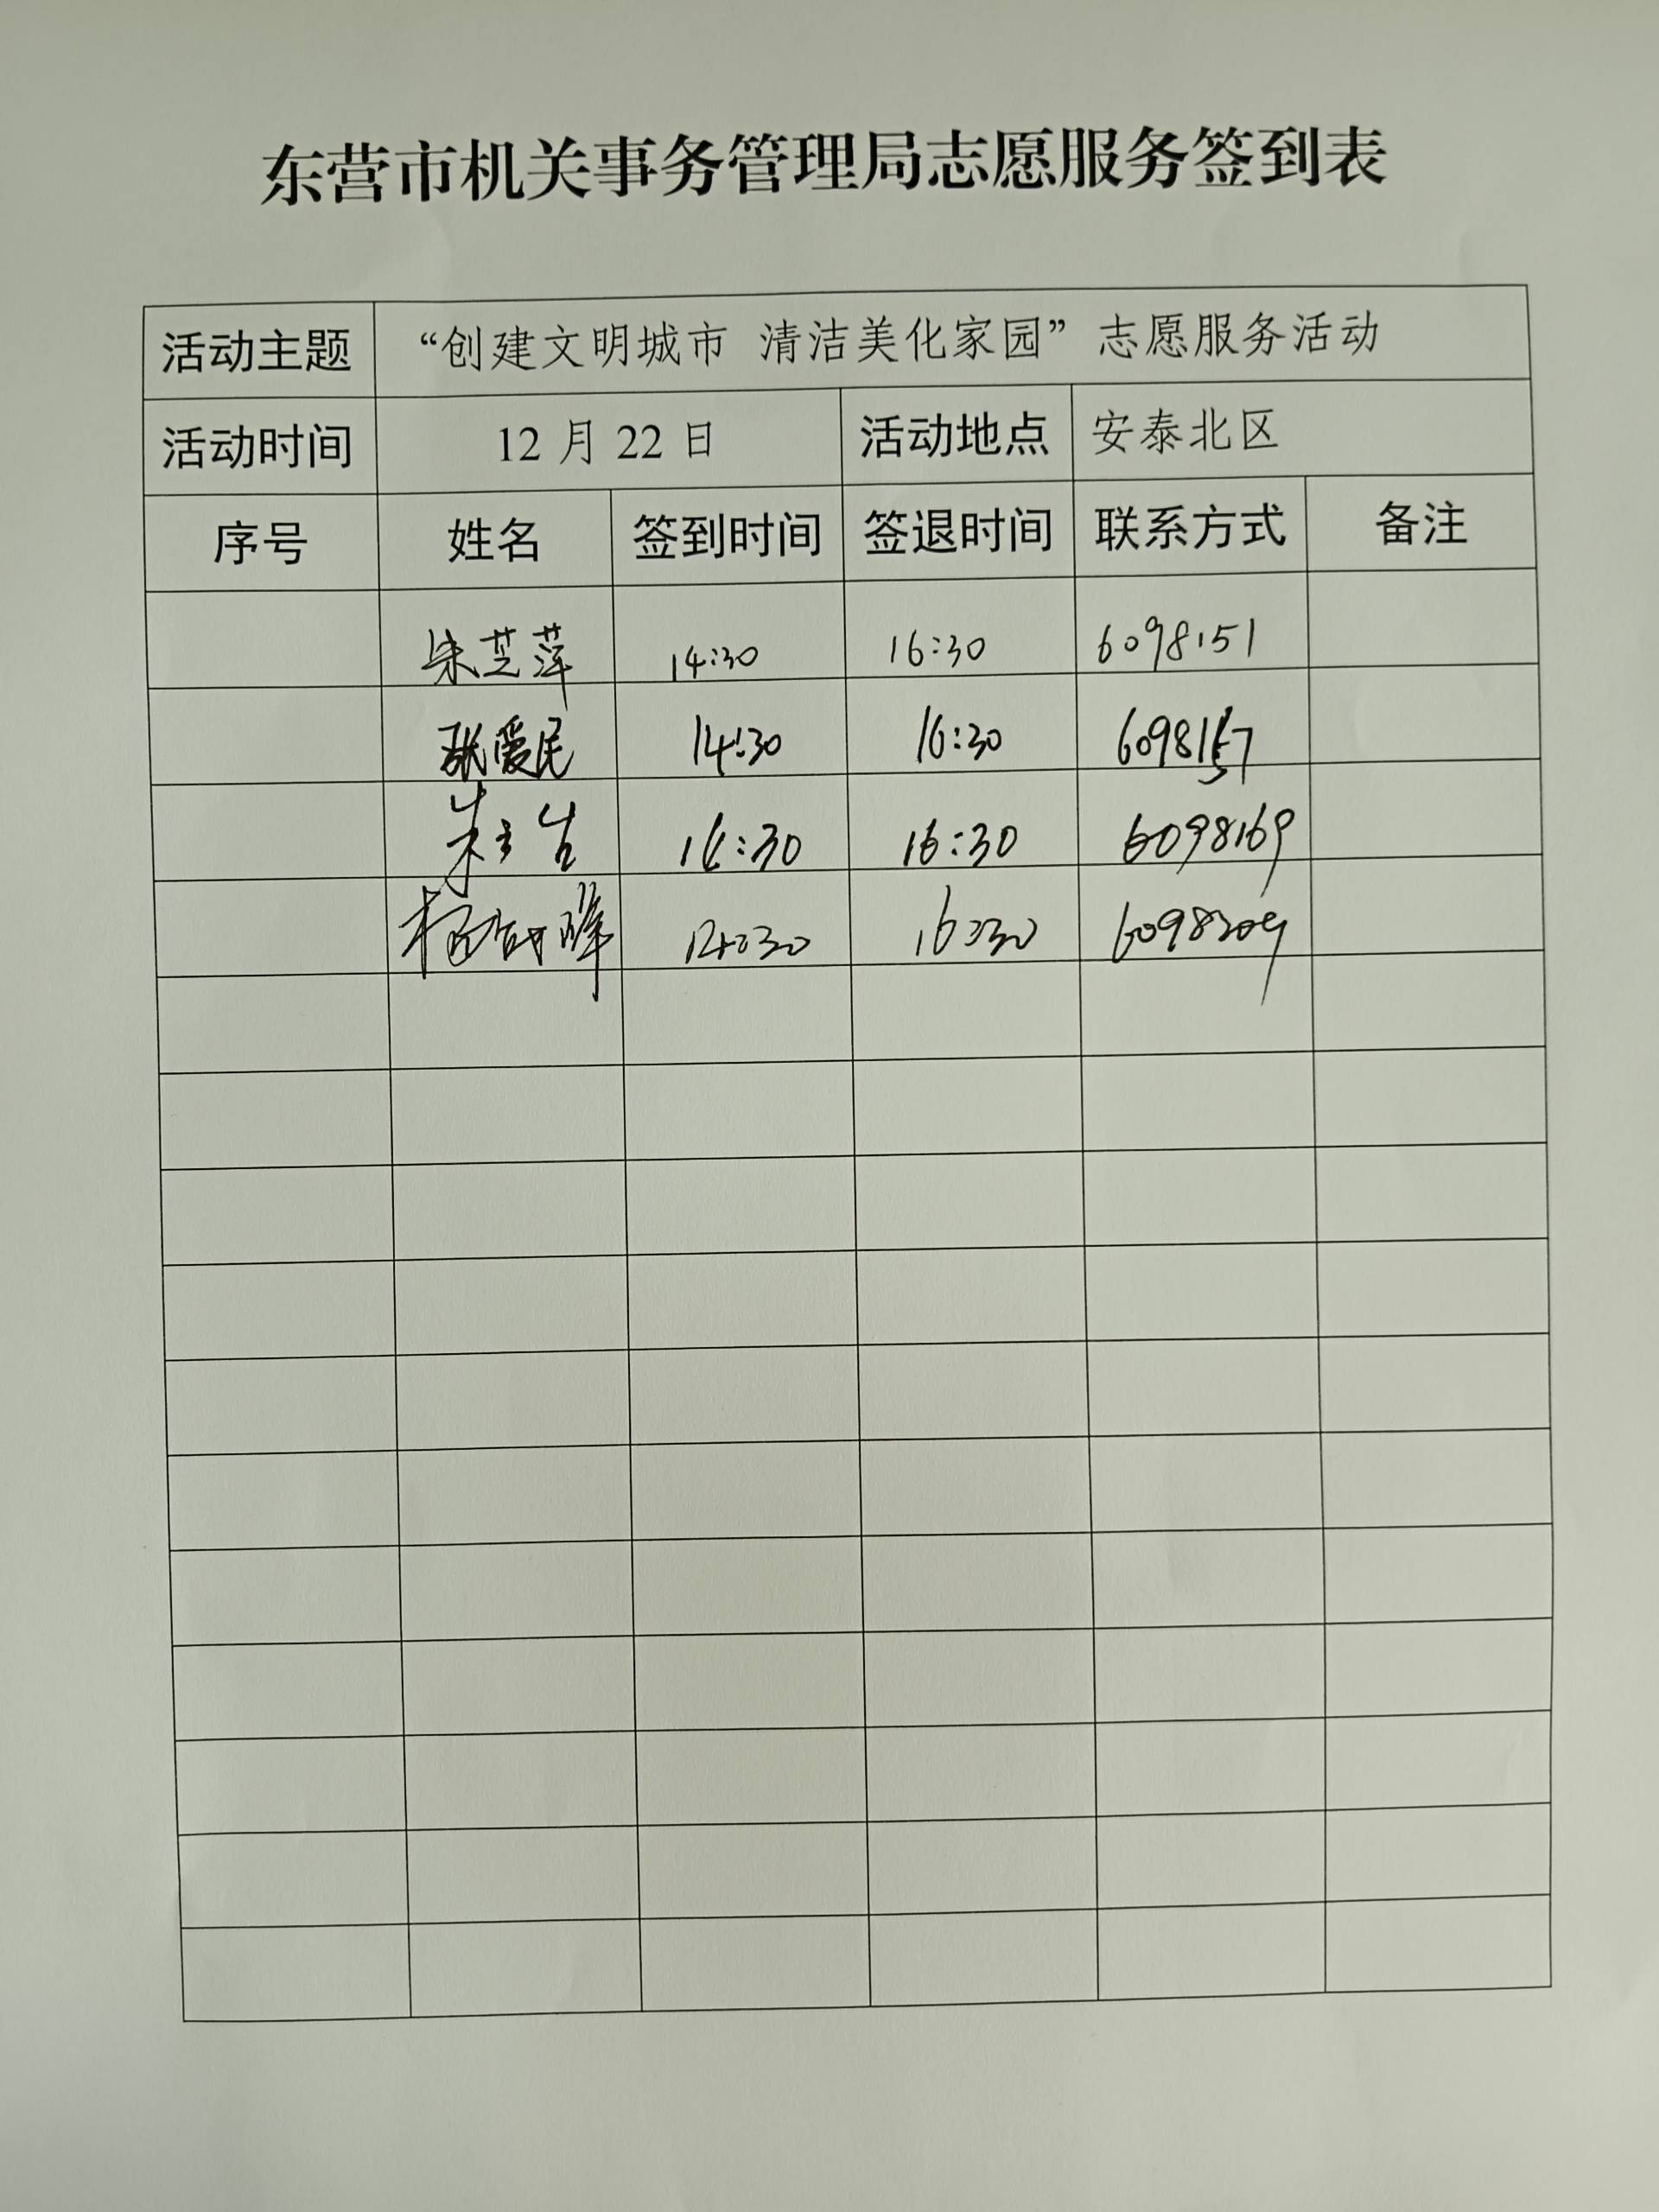 东营市机关事务管理局志愿服务签到表
活动主题 “创建文明城市 清洁美化家园”志愿服务活动
活动时间 12月22日 活动地点 安泰北区
序号 姓名 签到时间 签退时间 联系方式 备注
朱芝萍 14:30 16:30 6098151
张爱民 14:30 16:30 6098157
14:30 16:30 6098169
杨 峰 14:30 16:30 6098209